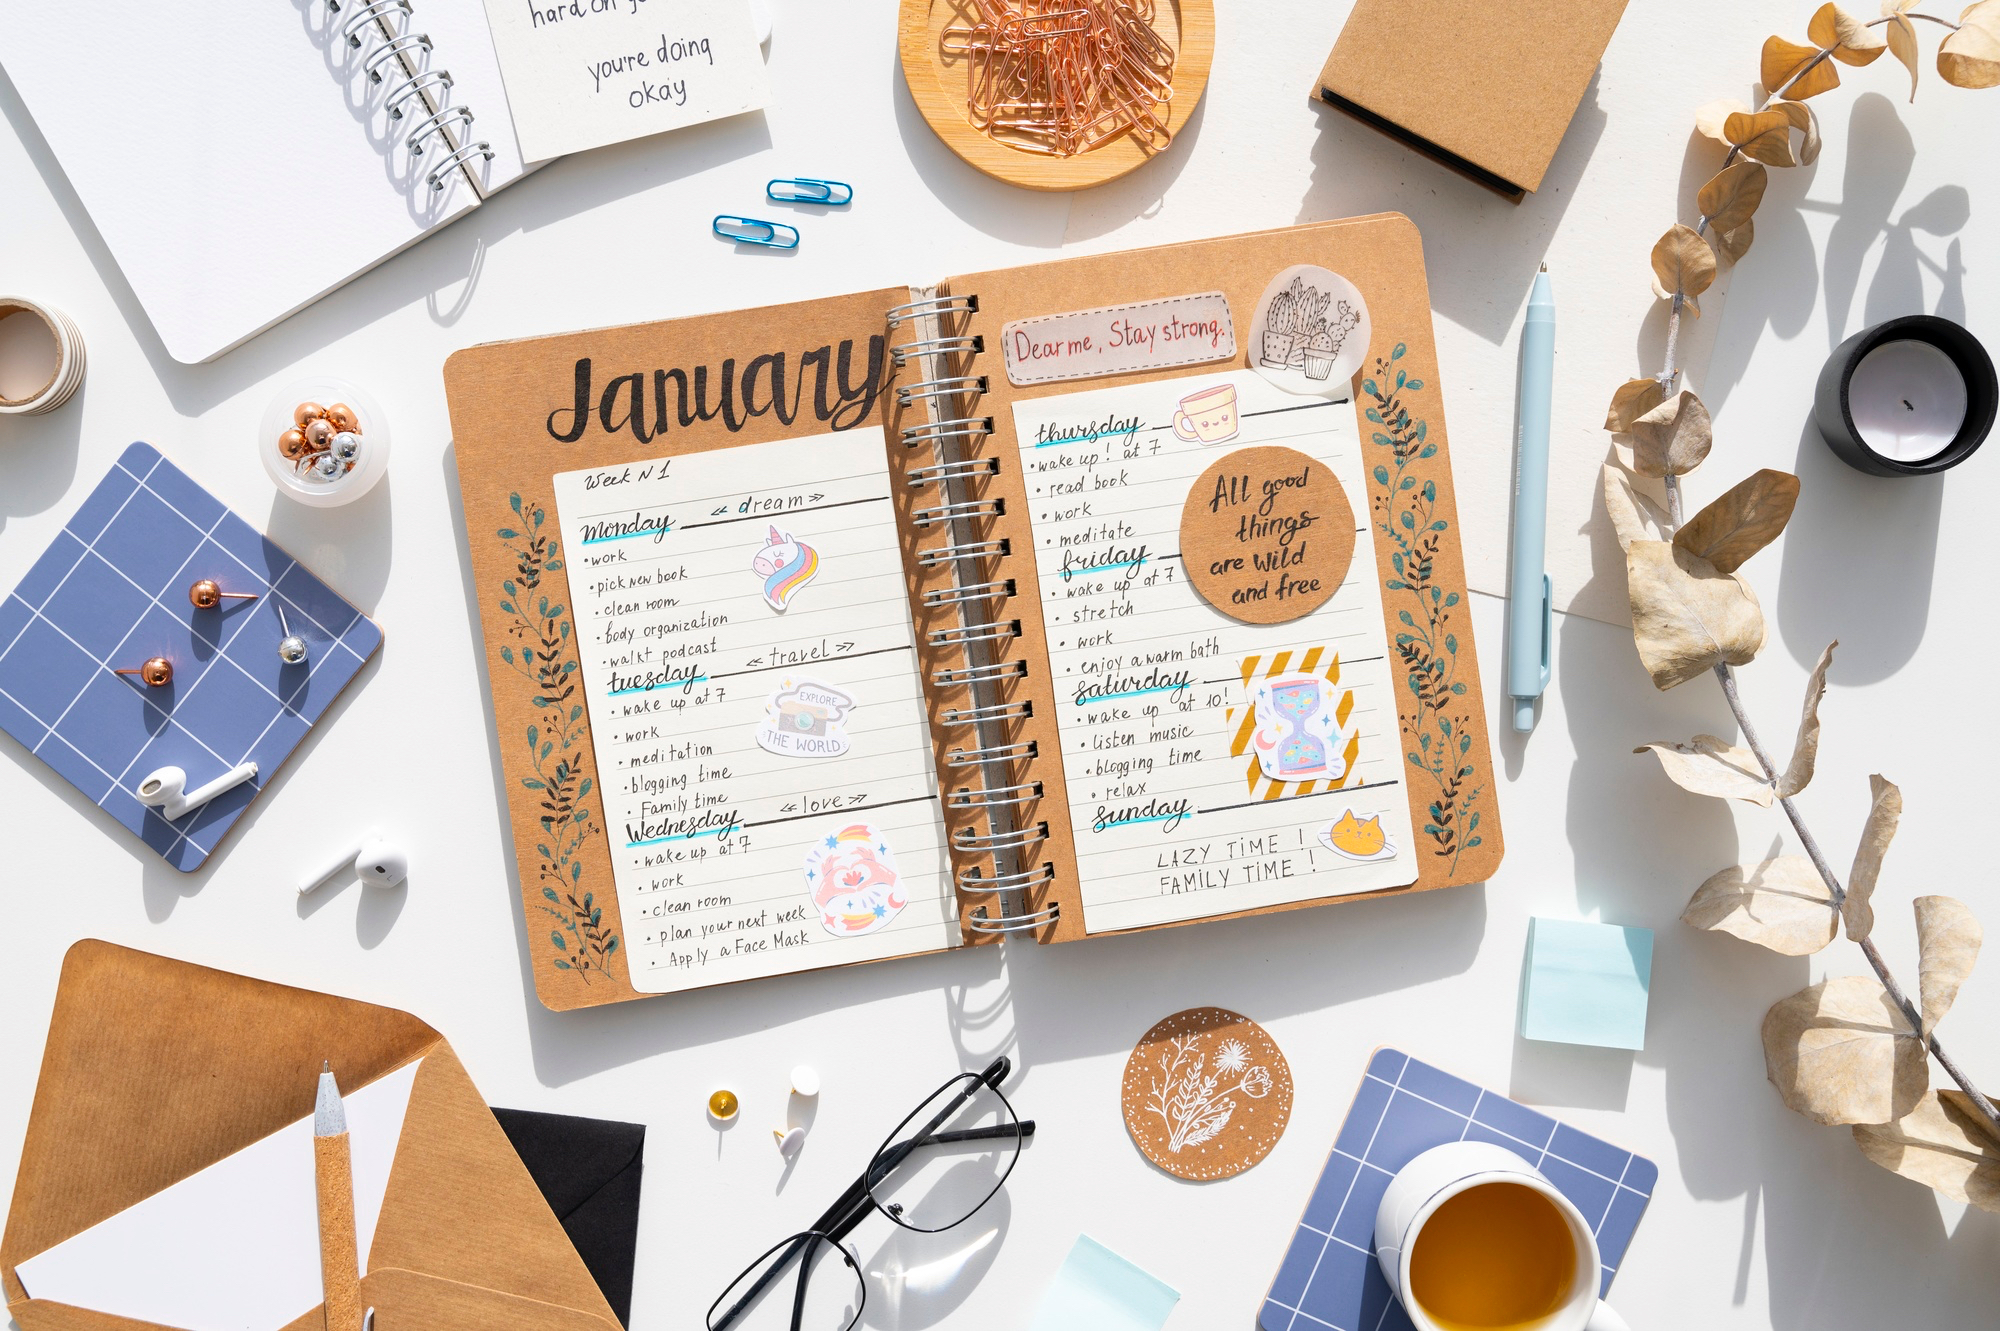 hard on
you're doing
okay
January
Week N 1
« dream »
monday
• work
• pick new book
• clean room
• body organization
• walkt podcast
« travel »
tuesday
• wake up at 7
• work
• meditation
• blogging time
• Family time
« love »
Wednesday
• wake up at 7
• work
• clean room
• plan your next week
• Apply a Face Mask
EXPLORE
THE WORLD
Dear me, Stay strong.
thursday
• wake up! at 7
• read book
• work
• meditate
friday
• wake up at 7
• stretch
• work
• enjoy a warm bath
saturday
• wake up at 10!
• listen music
• blogging time
• relax
sunday
LAZY TIME !
FAMILY TIME !
All good
things
are wild
and free